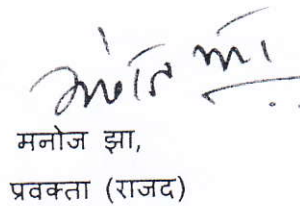 मनोज झा,
प्रवक्ता (राजद)